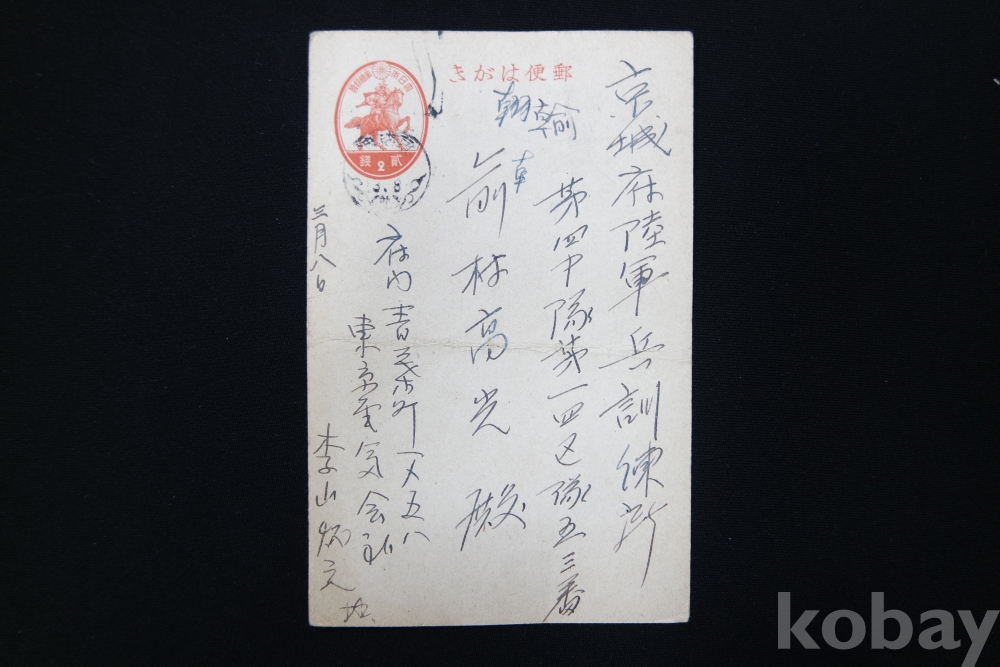 郵便はがき
京城府陸軍兵訓練所
第四中隊第一四区隊五三番
翰
翔
車
前林高光殿
貳
2
錢
府内青葉町一ノ五八
東京電気会社
李山炳元
三月八日
kobay